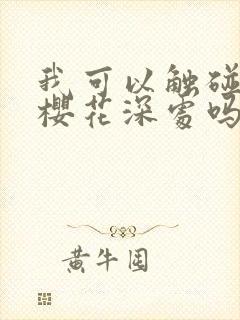 我可以触碰
樱花深处吗
黄牛囤